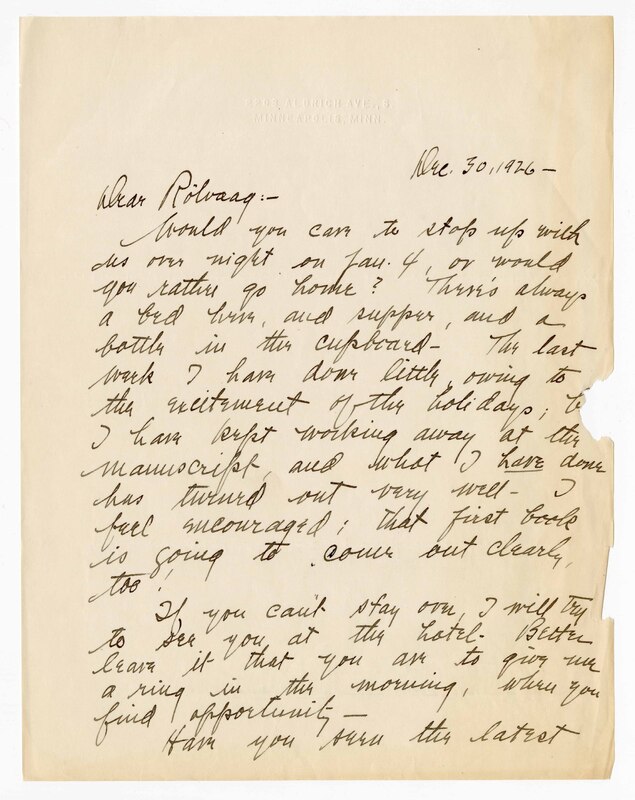 2208 ALDRICH AVE., S.
MINNEAPOLIS, MINN.
Dec. 30, 1926 –
Dear Rölvaag:–
Would you care to stop up with
us over night on Jan. 4, or would
you rather go home? There's always
a bed here, and supper, and a
bottle in the cupboard – The last
week I have done little, owing to
the excitement of the holidays; b
I have kept working away at the
manuscript, and what I have done
has turned out very well – I
feel encouraged; that first book
is going to come out clearly,
too!
If you can't stay over, I will try
to see you at the hotel. Better
leave it that you are to give me
a ring in the morning, when you
find opportunity –
Have you seen the latest